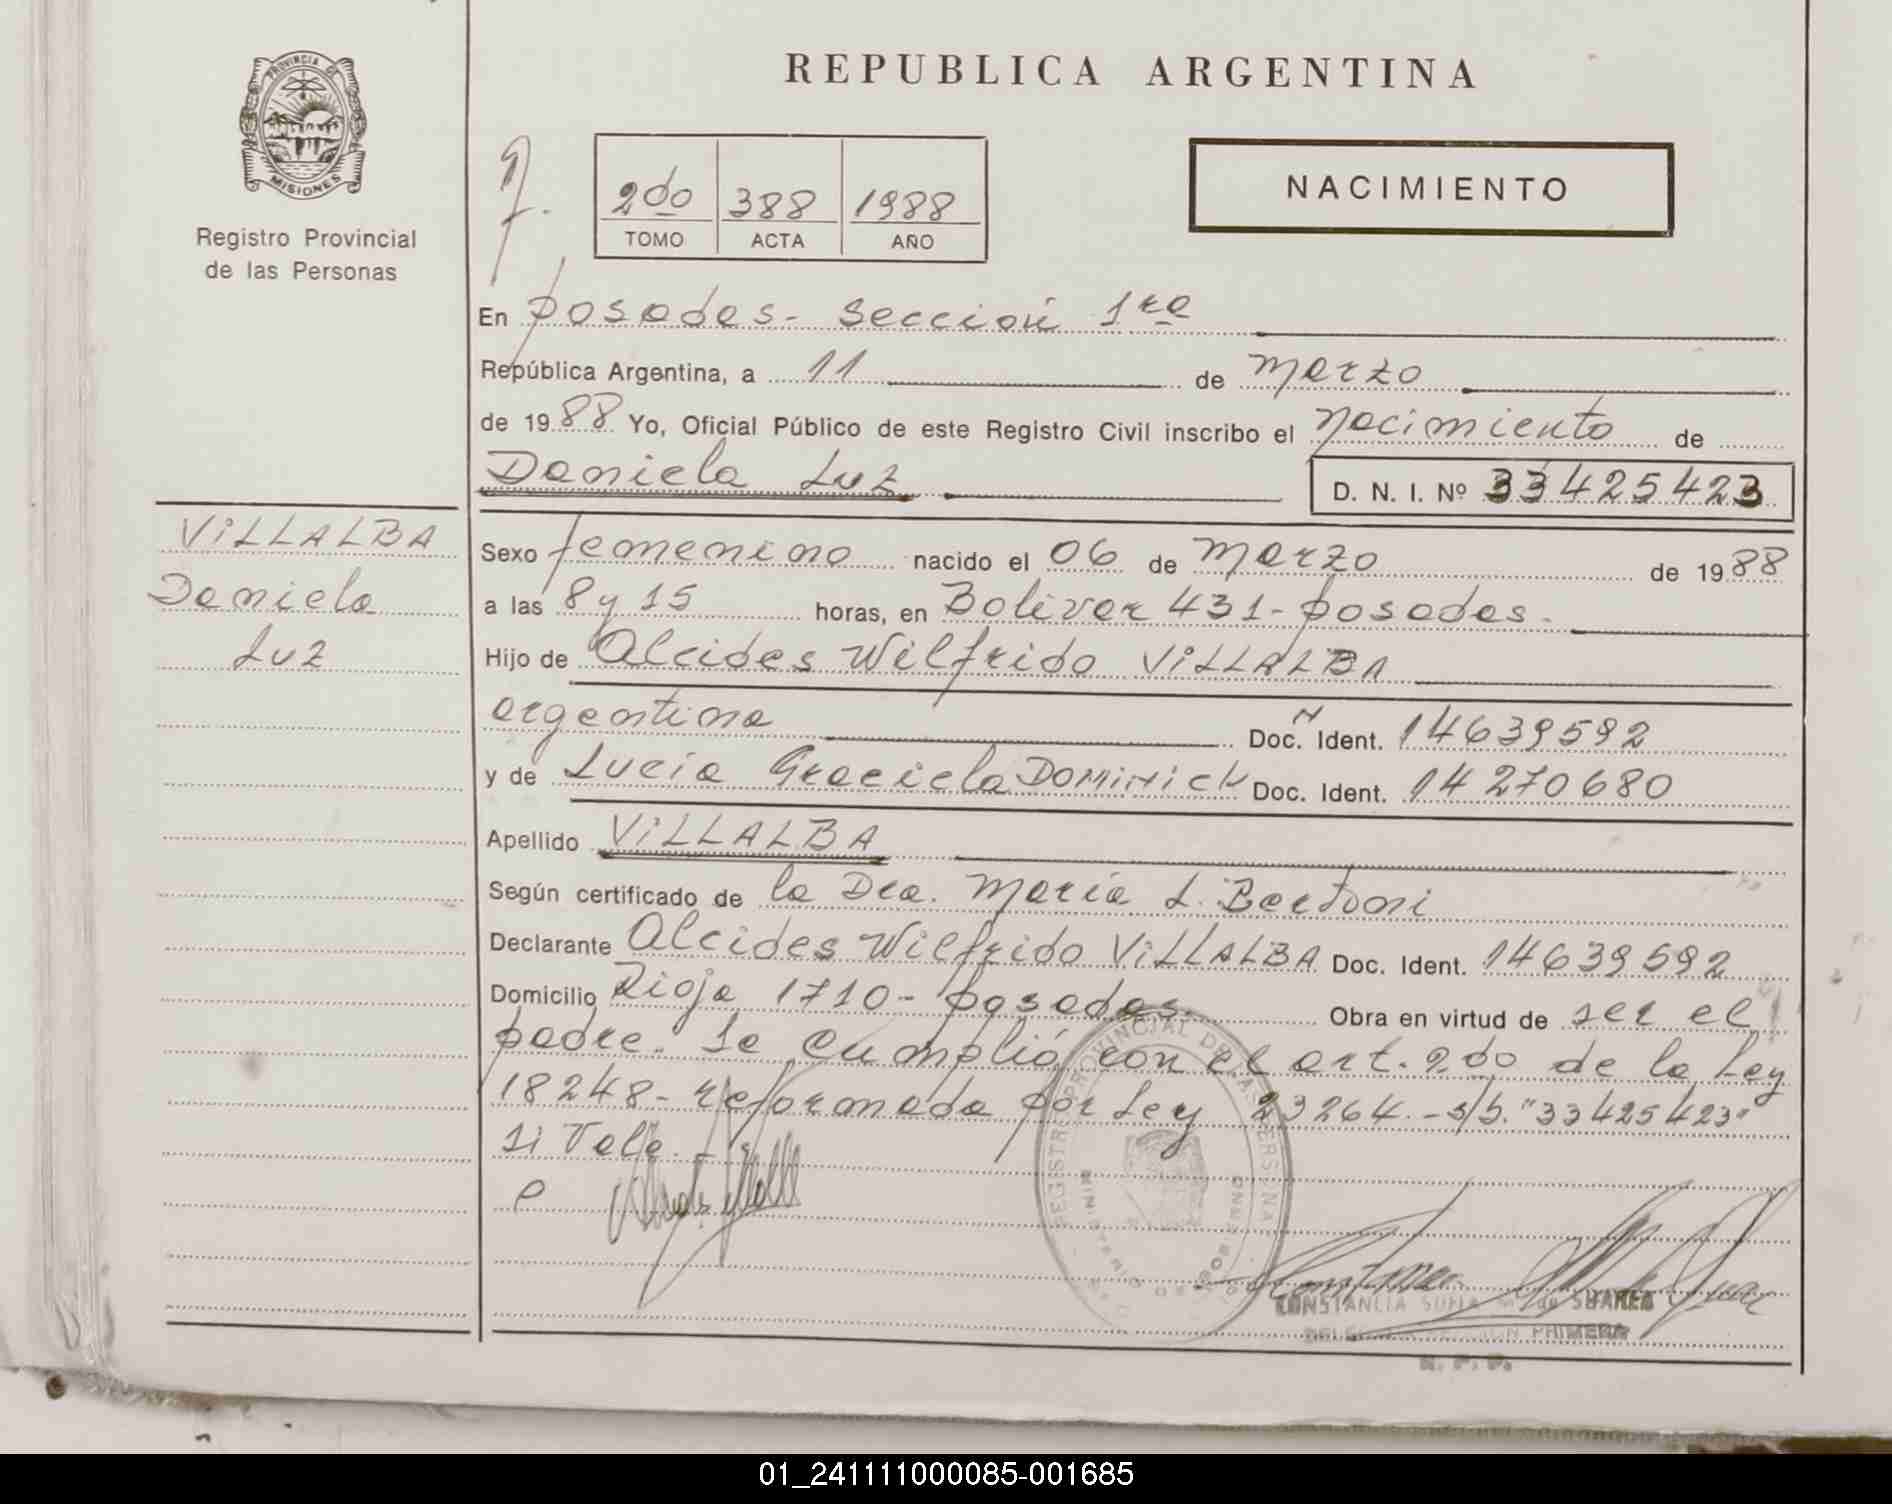 REPUBLICA ARGENTINA
PROVINCIA DE
MISIONES
Registro Provincial
de las Personas
2do 388 1988
TOMO ACTA AÑO
NACIMIENTO
En posadas - sección 1ra
República Argentina, a 11 de marzo
de 1988 Yo, Oficial Público de este Registro Civil inscribo el nacimiento de
Daniela Luz D. N. I. Nº 33425423
VILLALBA
Daniela
Luz
Sexo femenino nacido el 06 de marzo de 1988
a las 8 y 15 horas, en Bolivar 431 - posadas -
Hijo de Alcides Wilfrido VILLALBA
argentina Doc. Ident. 14639592
y de Lucía Graciela DOMINICK Doc. Ident. 14270680
Apellido VILLALBA
Según certificado de la Dra. María L. Bertoni
Declarante Alcides Wilfrido VILLALBA Doc. Ident. 14639592
Domicilio Rioja 1710 - posadas. Obra en virtud de ser el
padre. Se cumplió con el art. 2do de la Ley
18248 - reformada por Ley 23264. - s/b. "33425423"
si Vale. -
REGISTRO PROVINCIAL DE LAS PERSONAS
MINISTERIO DE GOBIERNO
CONSTANCIA SOFIA de SUAREZ
SECCION PRIMERA
R. P. P.
01_241111000085-001685